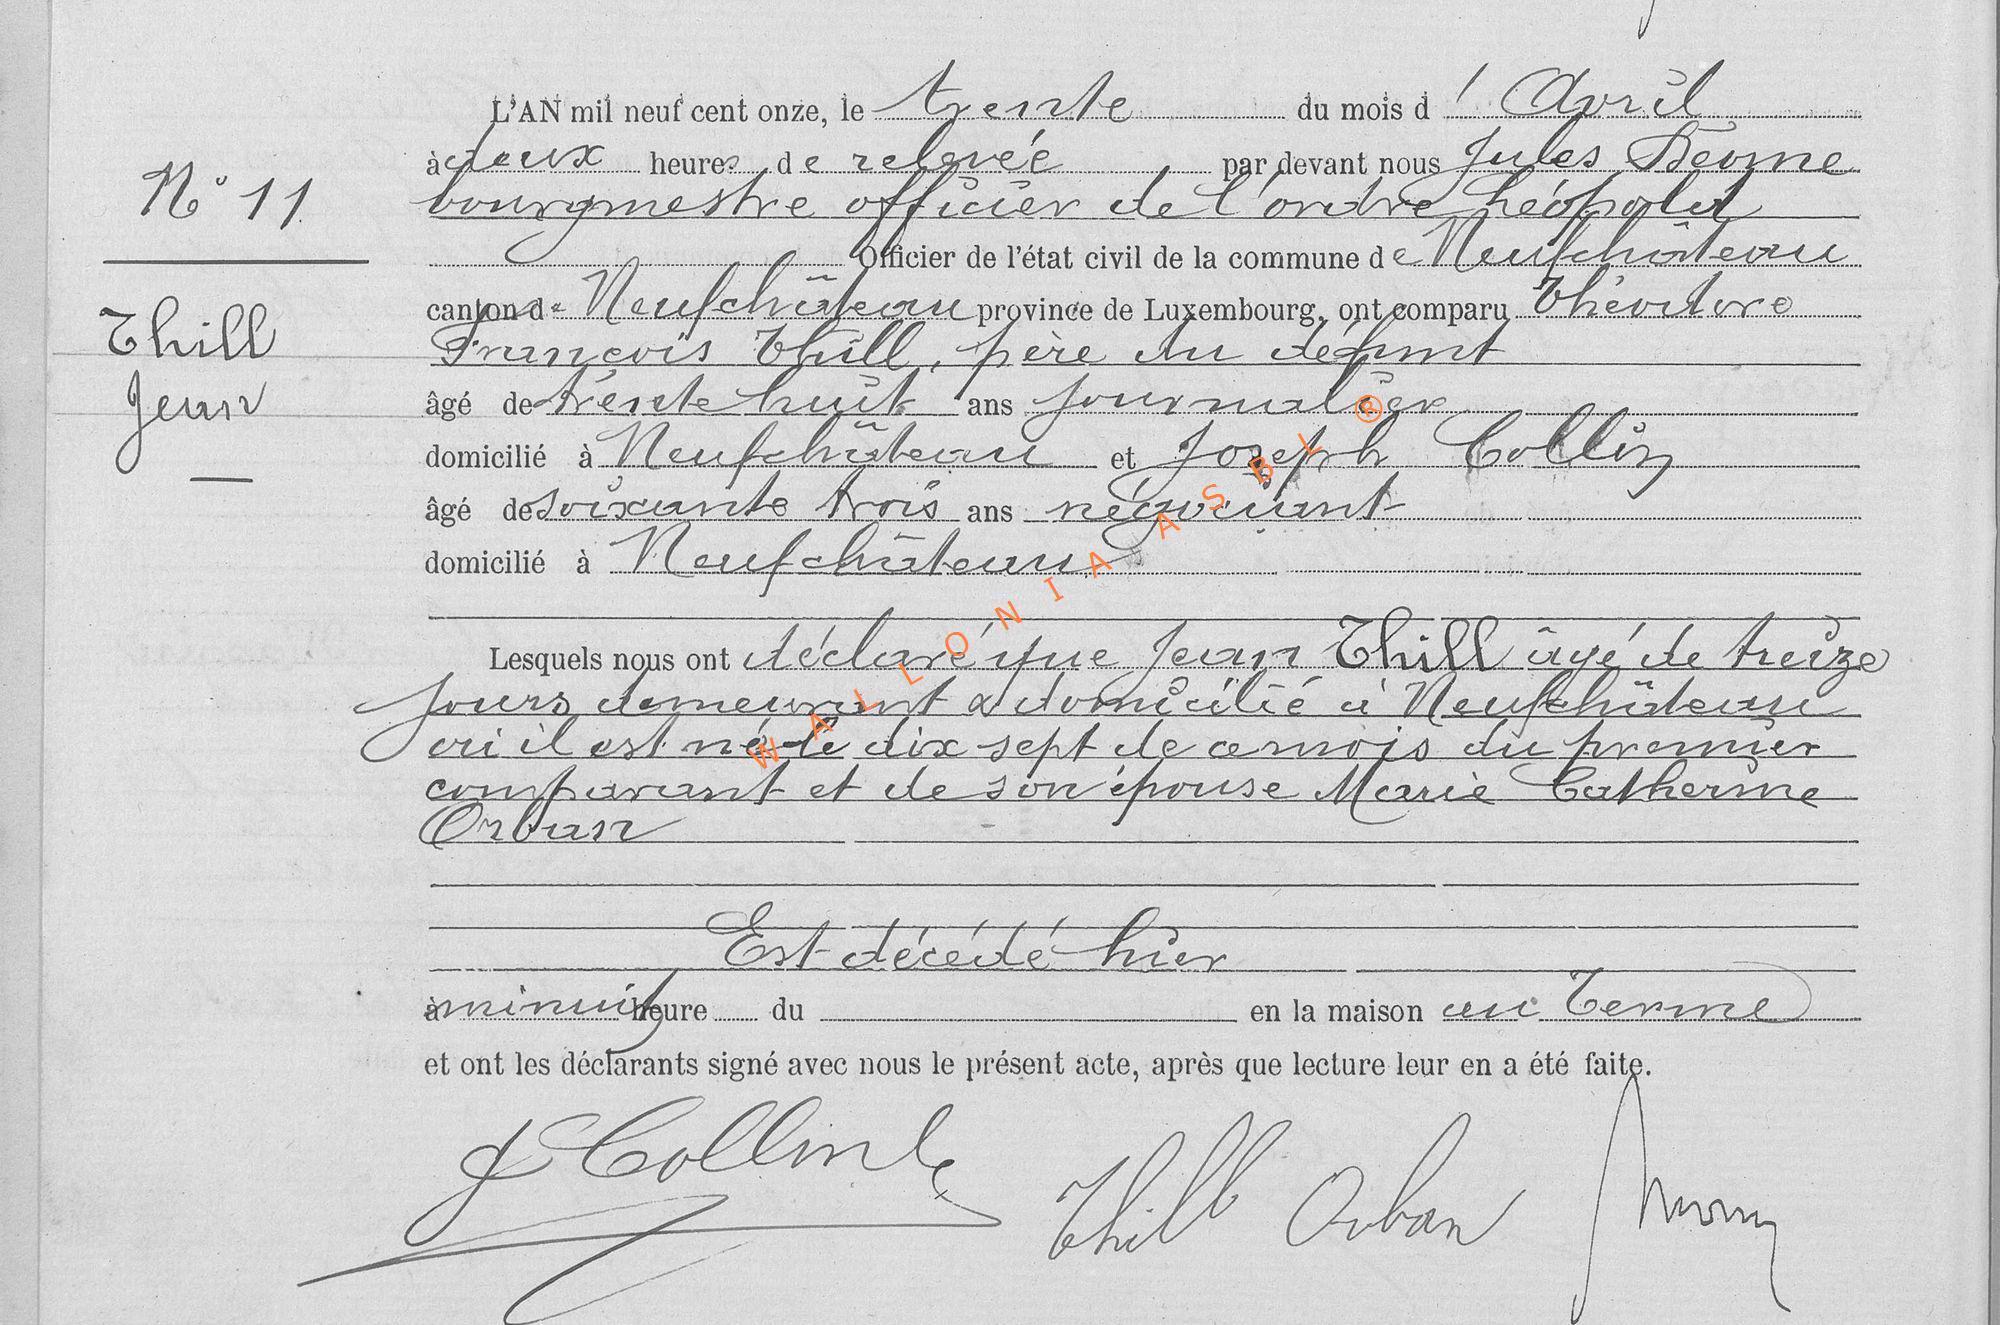 N° 11
Thill
Jean
L'AN mil neuf cent onze, le trente du mois d'Avril
à deux heures de relevée par devant nous Jules
bourgmestre officier de l'ordre Léopold
Officier de l'état civil de la commune de Neufchâteau
canton de Neufchâteau province de Luxembourg, ont comparu Théodore
François Thill, père du défunt
âgé de trente huit ans journalier
domicilié à Neufchâteau et Joseph Collin
âgé de soixante trois ans négociant
domicilié à Neufchâteau
Lesquels nous ont déclaré que Jean Thill âgé de treize
jours demeurant & domicilié à Neufchâteau
où il est né le dix sept de ce mois du premier
comparant et de son épouse Marie Catherine
Orban
Est décédé hier
à minuit heure du en la maison au Terme
et ont les déclarants signé avec nous le présent acte, après que lecture leur en a été faite.
J Collin
Thill Orban
WALLONIA ASBL ®